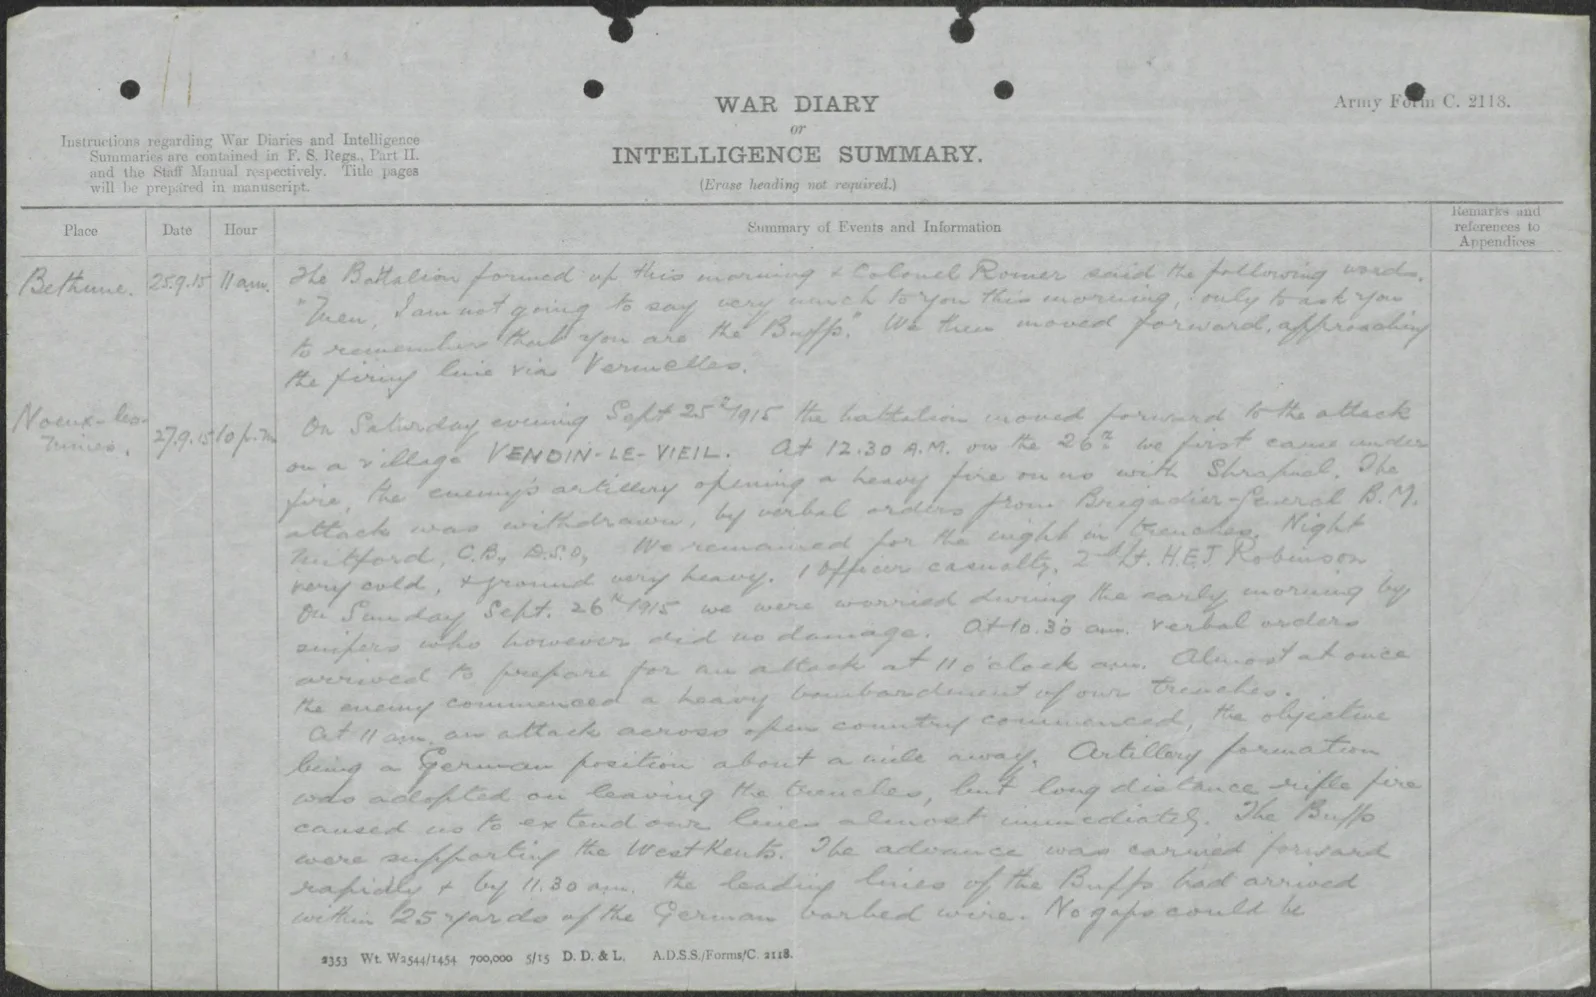 WAR DIARY
or
INTELLIGENCE SUMMARY.
(Erase heading not required.)
Army Form C. 2118.
Instructions regarding War Diaries and Intelligence
Summaries are contained in F. S. Regs., Part II.
and the Staff Manual respectively. Title pages
will be prepared in manuscript.
Place
Date
Hour
Summary of Events and Information
Remarks and
references to
Appendices
Bethune.
25.9.15
11 a.m.
The Battalion formed up this morning & Colonel Romer said the following words.
"Men, I am not going to say very much to you this morning, only to ask you
to remember that you are the Buffs." We then moved forward, approaching
the firing line via Vermelles.
Noeux-les-
Mines.
27.9.15
10 p.m.
On Saturday evening Sept 25th 1915 the battalion moved forward to the attack
on a village VENDIN-LE-VIEIL. At 12.30 A.M. on the 26th we first came under
fire, the enemy's artillery opening a heavy fire on us with Shrapnel. The
attack was withdrawn, by verbal orders from Brigadier-General B.M.
Mitford, C.B., D.S.O., We remained for the night in trenches. Night
very cold, & ground very heavy. 1 Officer casualty, 2nd Lt. H.E.J. Robinson
On Sunday Sept. 26th 1915 we were worried during the early morning by
snipers who however did no damage. At 10.30 a.m. verbal orders
arrived to prepare for an attack at 11 o'clock a.m. Almost at once
the enemy commenced a heavy bombardment of our trenches.
At 11 a.m. an attack across open country commenced, the objective
being a German position about a mile away. Artillery formation
was adopted on leaving the trenches, but long distance rifle fire
caused us to extend our lines almost immediately. The Buffs
were supporting the West Kents. The advance was carried forward
rapidly & by 11.30 a.m. the leading lines of the Buffs had arrived
within 25 yards of the German barbed wire. No gaps could be
2353 Wt. W2544/1454 700,000 5/15 D. D. & L. A.D.S.S./Forms/C. 2118.